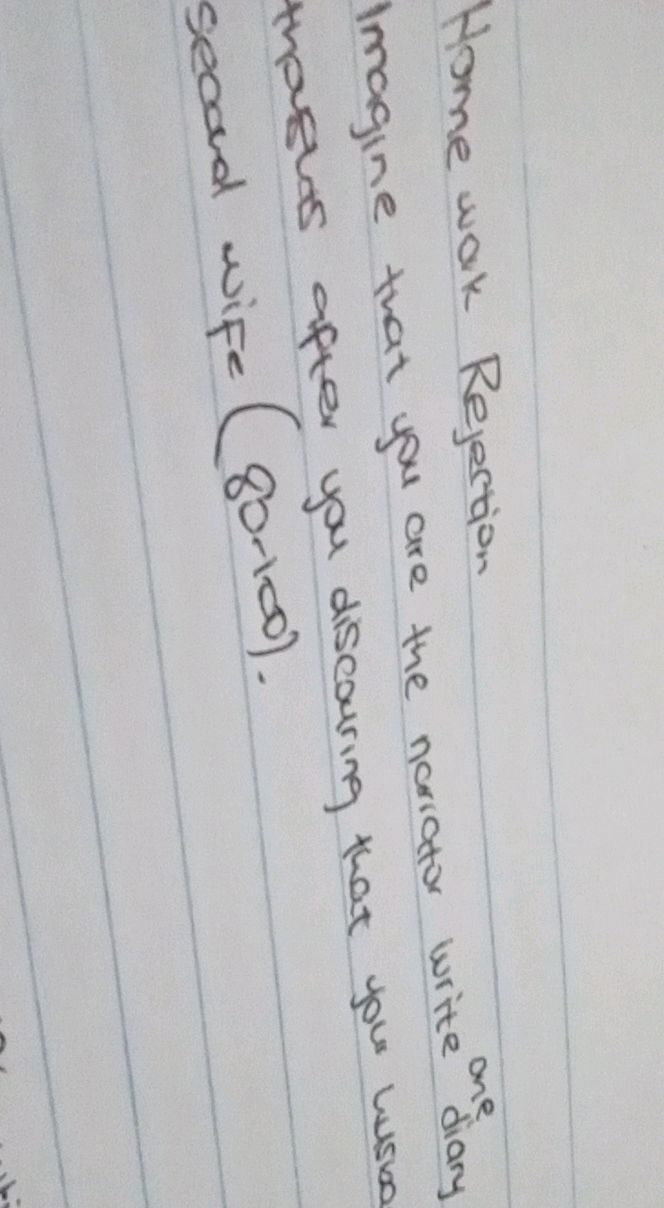 Home work Rejection
Imagine that you are the narrator write one diary
thoughts after you discouring that your husba
second wife (80-100).